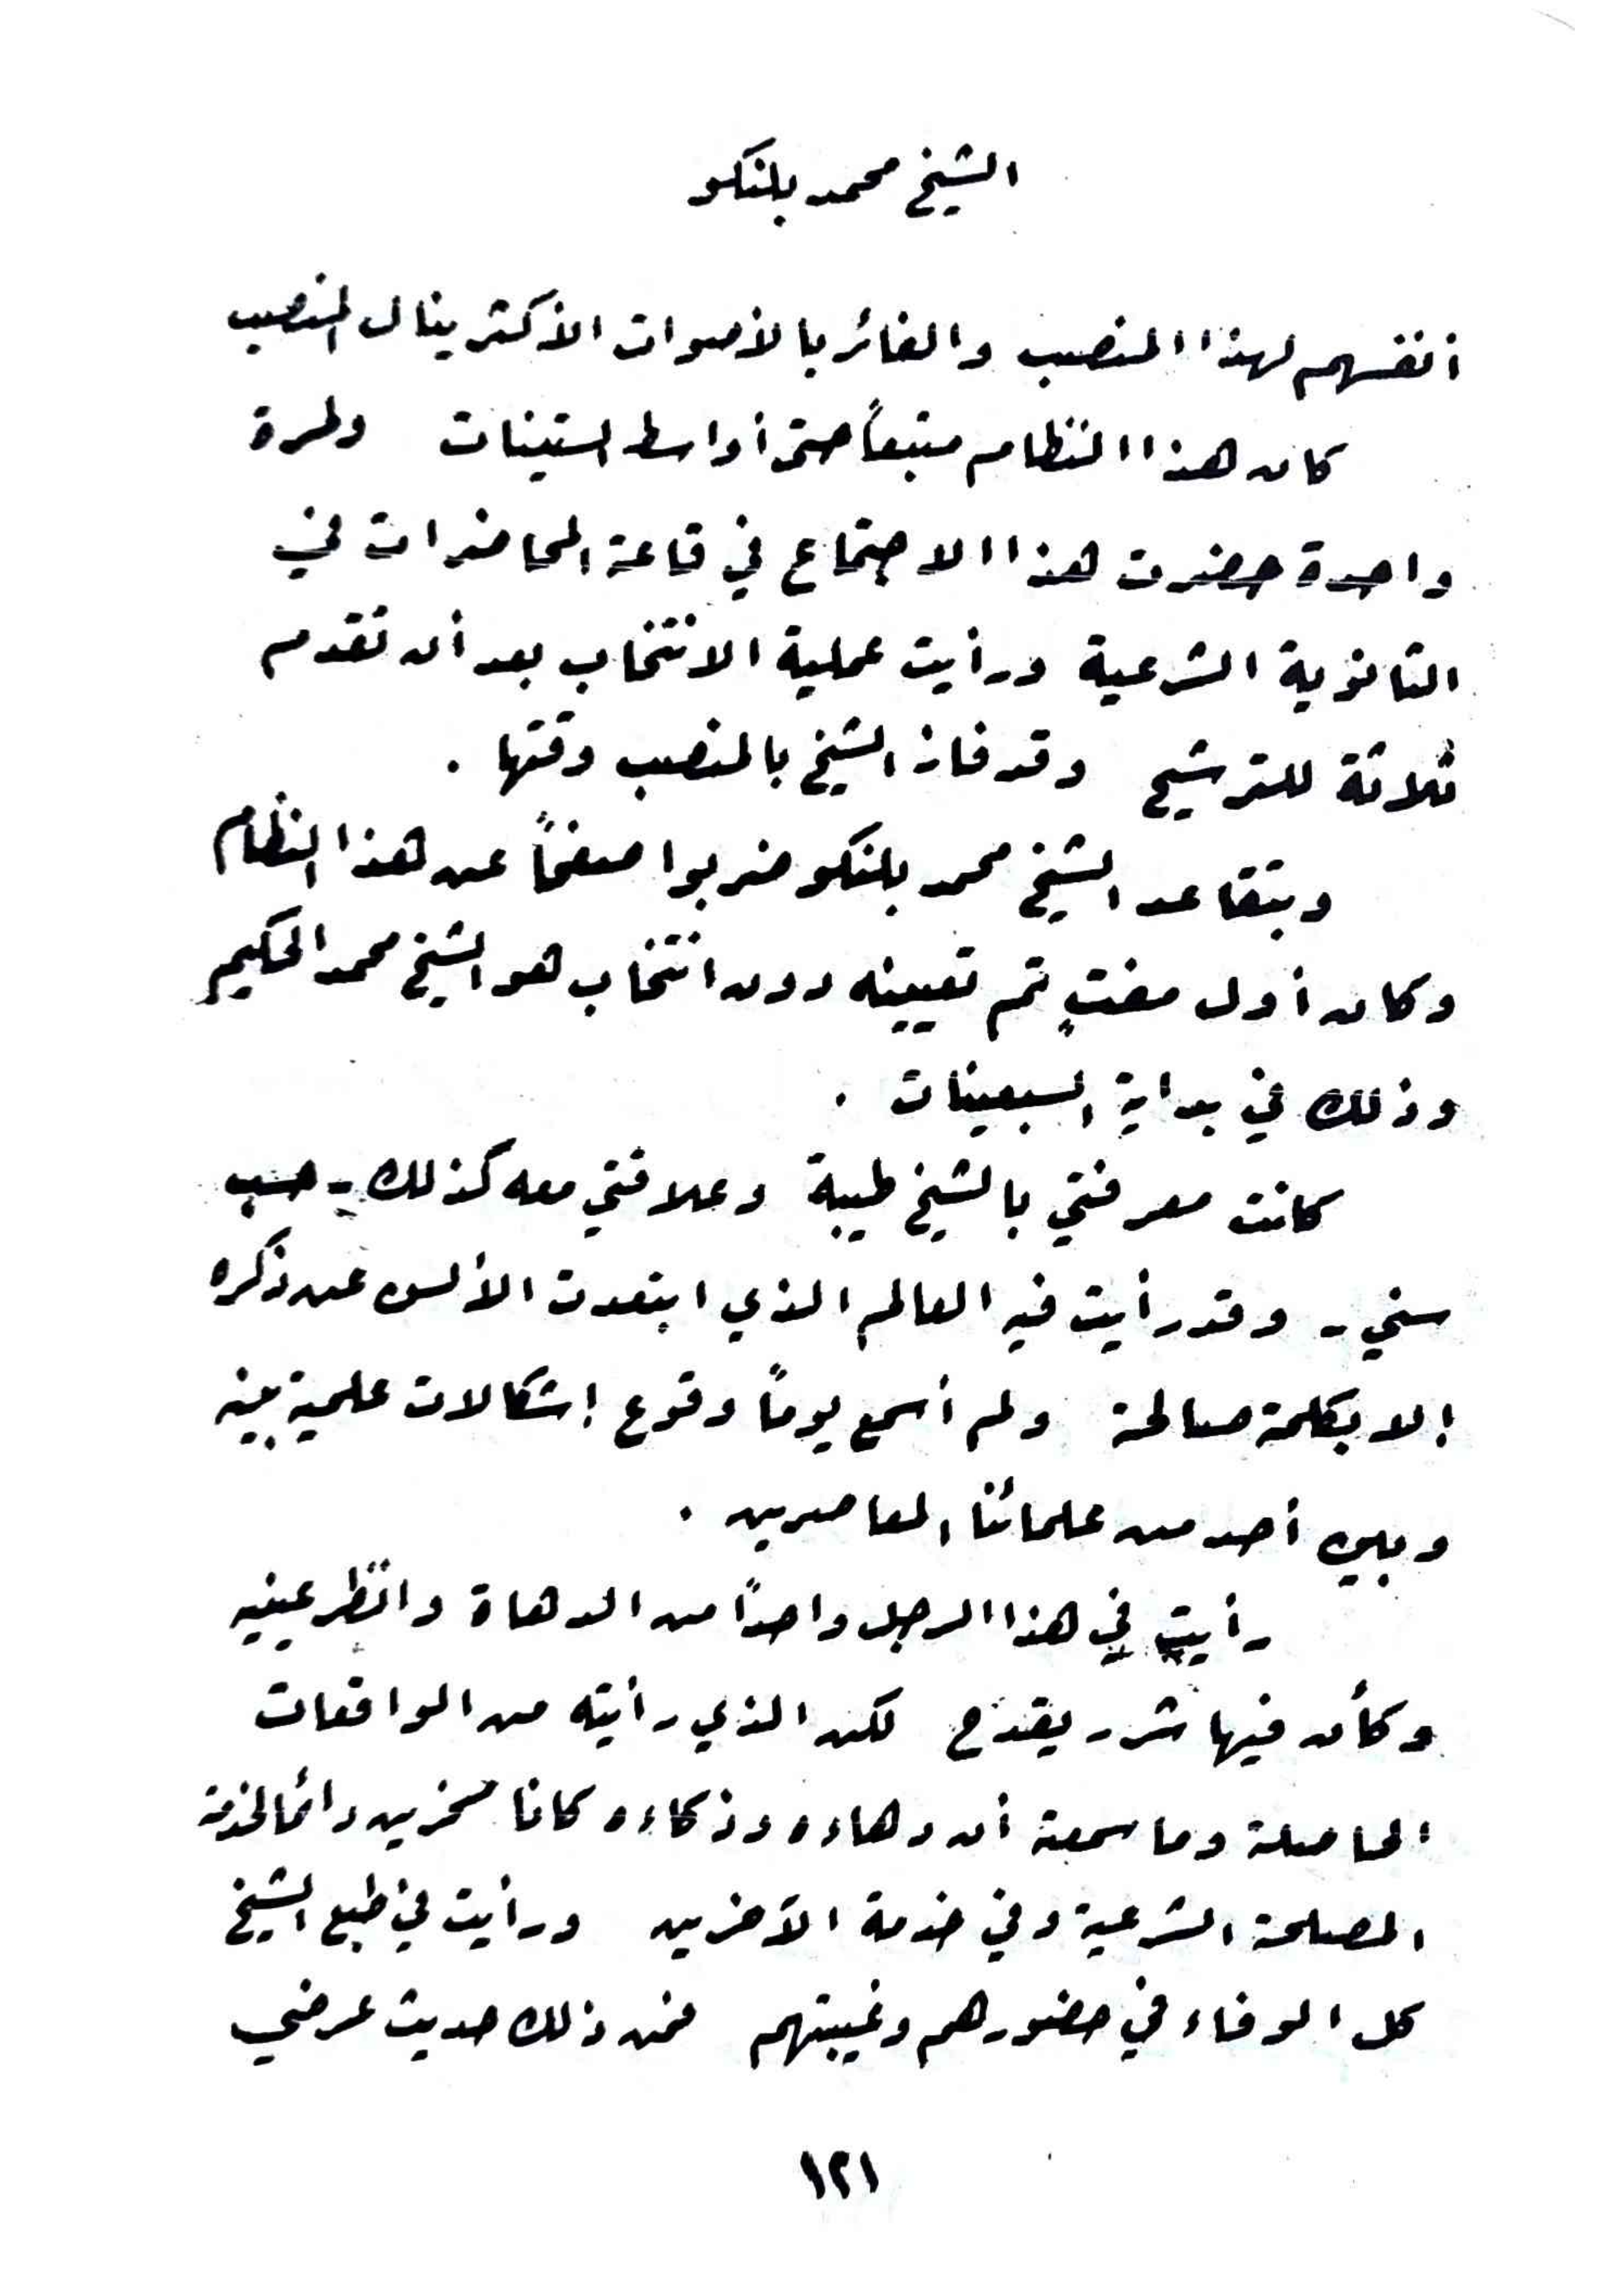 الشيخ محمد بلنكو
أنفسهم لهذا المنصب والفائز بالأصوات الأكثر ينال المنصب
كان هذا النظام متبعاً حتى أواسط الستينات ولمرة
واحدة حضرت هذا الاجتماع في قاعة المحاضرات في
الثانوية الشرعية ورأيت عملية الانتخاب بعد أن تقدم
ثلاثة للترشيح وقد فاز الشيخ بالمنصب وقتها .
وبتقاعد الشيخ محمد بلنكو ضربوا صفحاً عن هذا النظام
وكان أول مفتٍ تم تعيينه دون انتخاب هو الشيخ محمد الحكيم
وذلك في بداية السبعينات .
كانت معرفتي بالشيخ طيبة وعلاقتي معه كذلك - حسب
سني - وقد رأيت فيه العالم الذي ابتعدت الألسن عن ذكره
إلا بكلمة صالحة ولم أسمع يوماً وقوع إشكالات علمية بينه
وبين أحد من علمائنا المعاصرين .
رأيت في هذا الرجل واحداً من الدهاة وانظر عينيه
وكأن فيها شرر يقدح لكن الذي رأيته من الواقعات
الحاصلة وما سمعة أن دهاءه وذكاءه كانا مسخرين دائماً لخدمة
المصلحة الشرعية وفي خدمة الآخرين ورأيت في طبع الشيخ
كل الوفاء في حضورهم وغيبتهم فمن ذلك حديث عرضي
١٢١